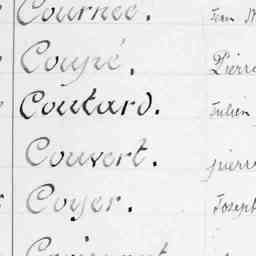 Cournée. Jean
Coupé. Pierre
Coutard. Julien
Couvert. pierre
Coyer. Joseph